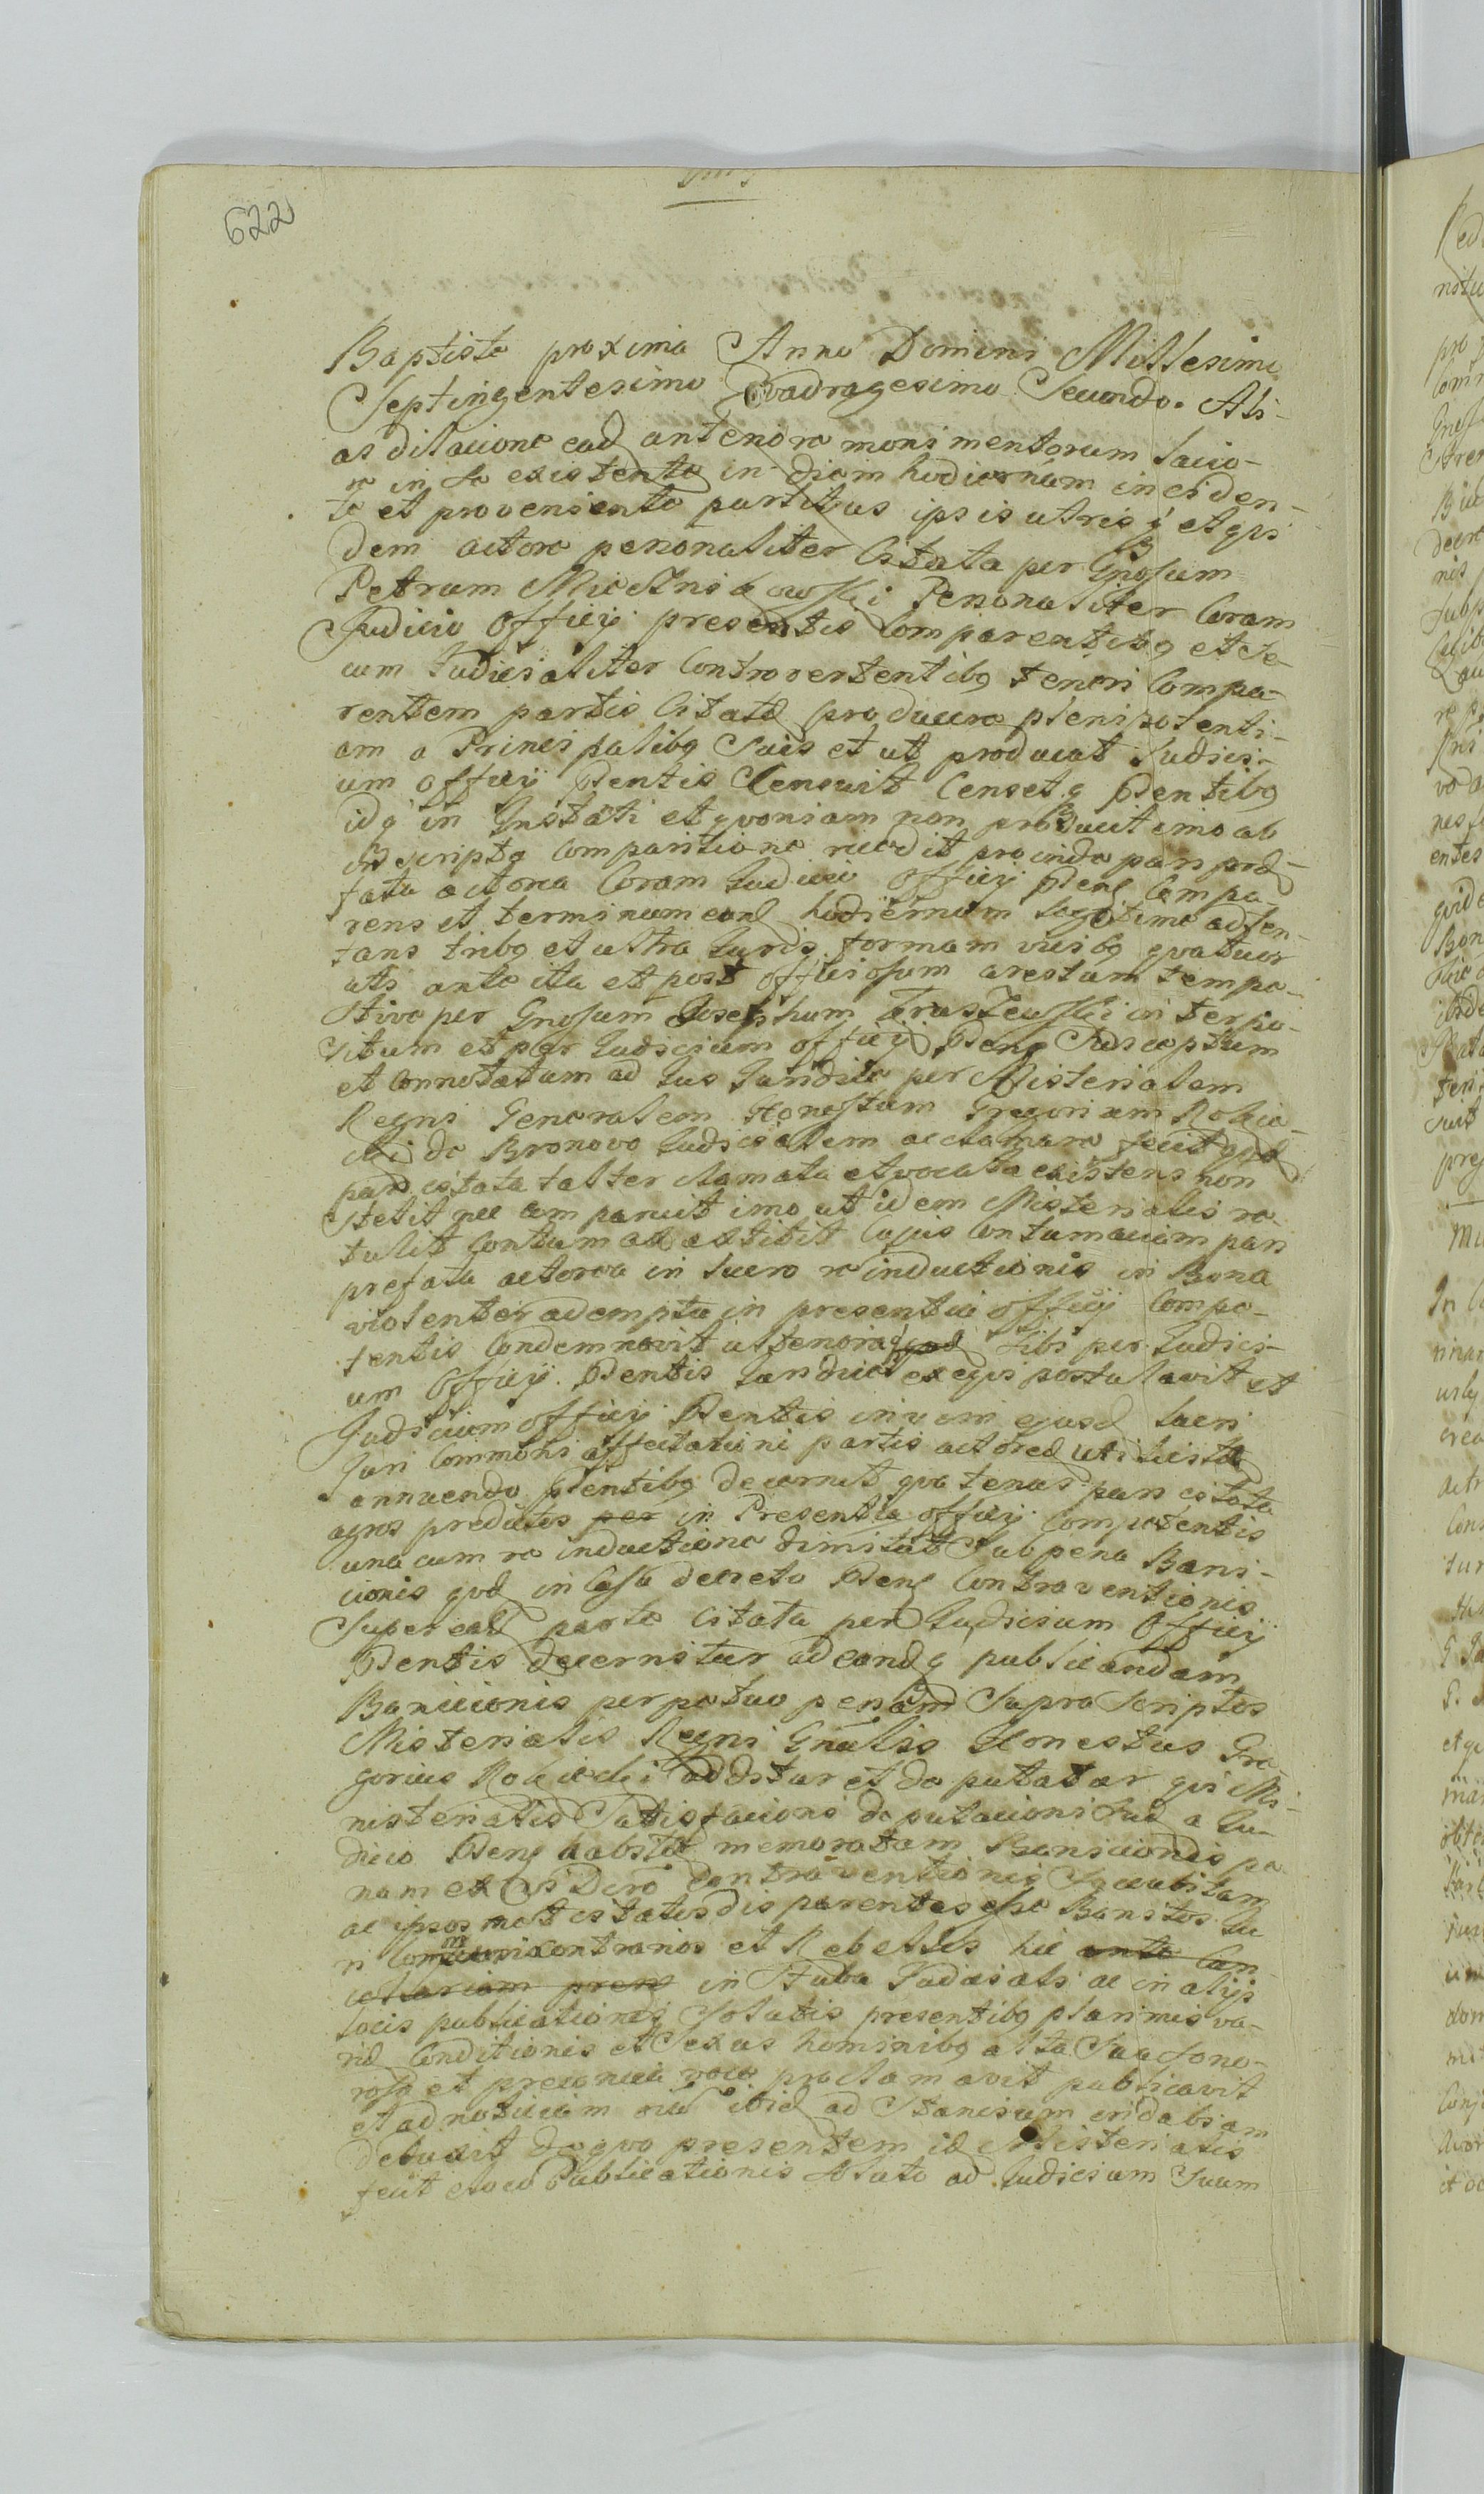 622
Baptiste proxima Anno Domini Millesimo
Septingentesimo Quadragesimo Secundo. Ali-
as dilacione ead anteriore monimentorum facio-
re in se existente in diem hodiernam inciden-
te et proveniente partibus ipsis utrisq et qui
dem actore personaliter Citata per Gnosum
Petrum Personaliter Coram
Judicio Officij presentis Comparentibq et se-
cum Judicialiter Controvertentibq teneri Compa-
rentem partis Citatæ producere plenipotenti-
am a Principalibq Suis et ut producat Judici-
um officij Pentis Censuit Censetq Pentibq
idq in Instati et qvoniam non producit imo ab
descripta Comparitione recedit proinde pars præ-
fata actorea Coram Judicio Officij Pens Compa-
rens et terminum eund hodiernum legitime adten-
tans tribq et ultra Juris formam vicibq qvatuor
uti ante ita et post officiosum arestum tempe-
stive per Gnosum Josephum in terpo-
situm et per Judicium officij Pens Susceptum
et Connotatum ad Jus Juridice per Misterialem
Regni Generalem Honestum Gregorium
de Bronovo Judicialem acclamare fecit qvæ
pars citata taliter clamata et vocata existens non
Stetit nec Comparuit imo ut idem Misterialis re-
tulit Contumax extitit Cujus Contumaciam pars
prefata actorea in lucro reinductionis in Bona
violenter adempta in presentia officij Compe-
tentis Condemnavit ulteriora sibi per Judici-
um Officij Pentis Juridice exeqvi postulavit et
Judicium officij Pentis in vim ejusd lucri
Juri Communi affectationi partis actoreæ uti Justæ
annuendo Ptentibq decernit qvatenus pars citata
agros predictos per in Presentia officij Competentis
una cum reinductione dimittat Sub pena Bani-
cionis qvæ in Casu decreto Pens Contraventionis
Super ead parte Citata per Judicium Officij
Pentis decernitur ad eandq publicandam
Banicionis perpetuo penam Supra Scriptos
Misterialis Regni Gnalis Honestus Gre-
gorius additur et deputatur qui Mi-
nisterialis Satisfacioni deputacioni Suæ a Ju-
dicio Pens habitæ memoratam Banicionis pe-
nam ex Contraventionis Succubitam
ac ipsos met citatos disparentes esse Banitos Ju-
ri Communi contrarios et Rebelles hic ante Can-
cellariam prens in Stuba Judiciali ac in alijs
locis publicationes Solutis presentibq plurimis va-
riæ Conditionis et Sexus hominibq alta Sua Sono-
rosa et preconicia voce proclamavit publicavit
et ad noticiam ibid ad Stancium
deduxit de qvo presentem id Misterialis
fecit et Publicationis ad Judicium Suum